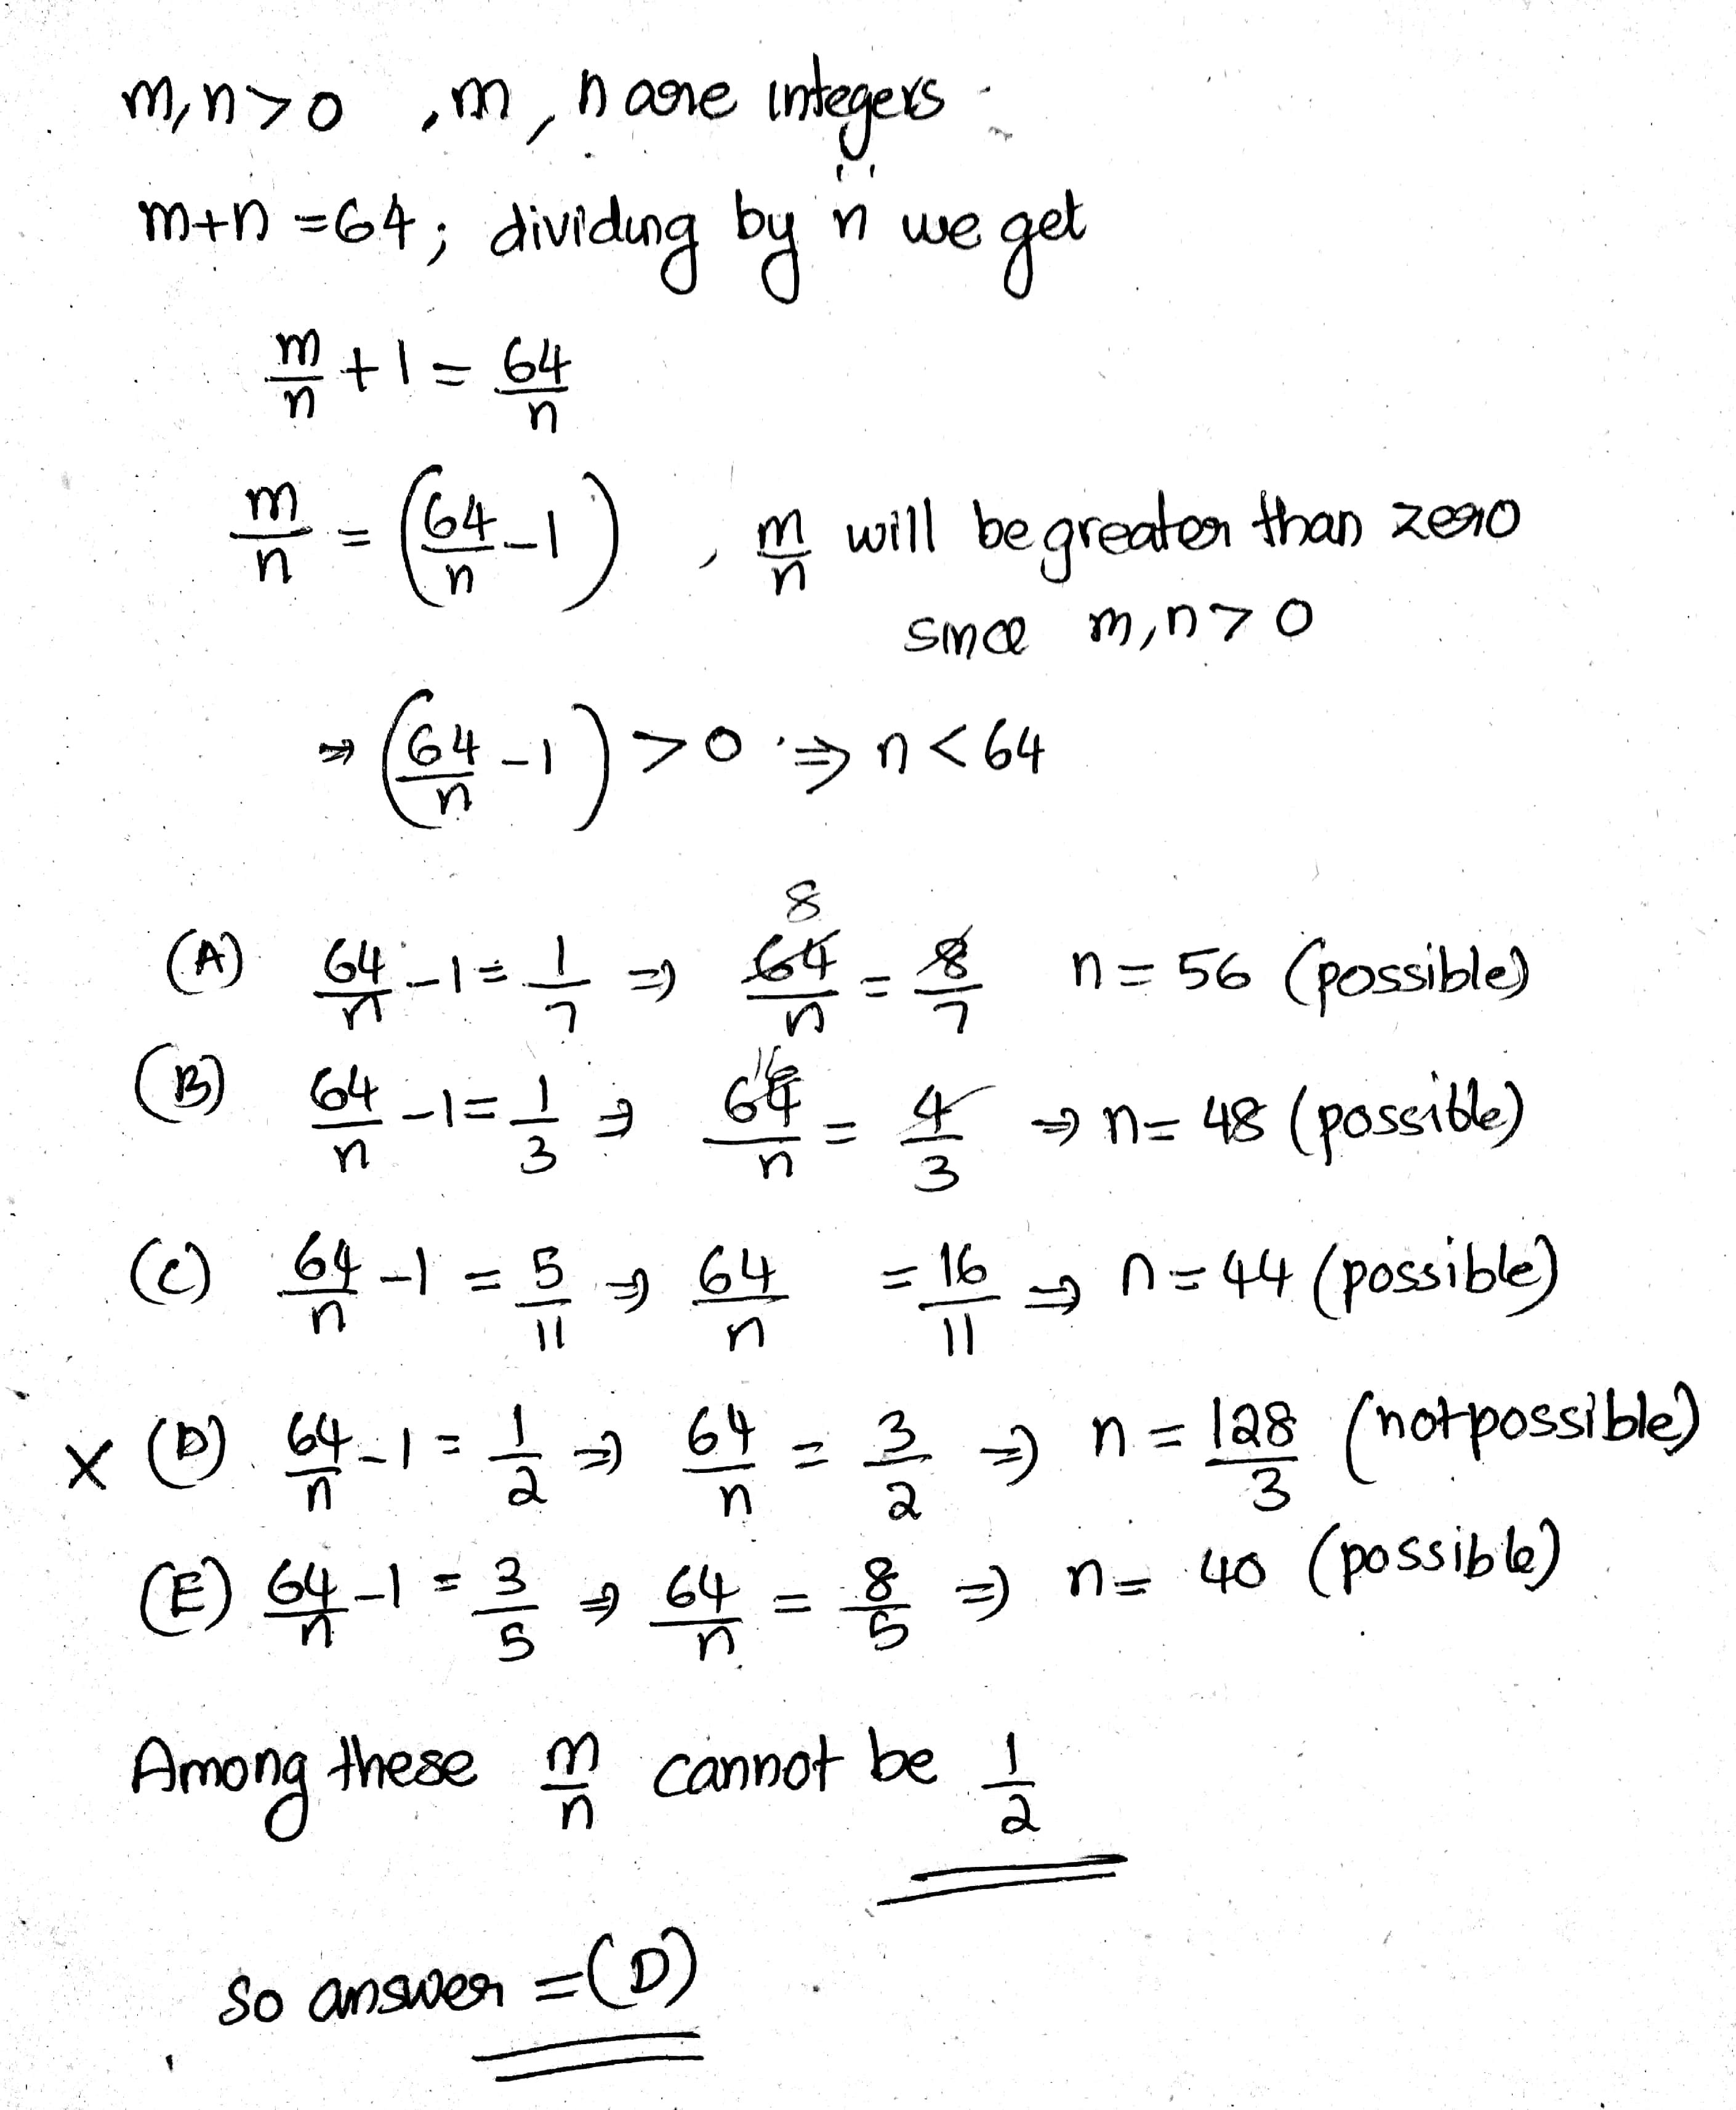 m,n>0 , m, n are integers
m+n =64; dividing by "n" we get
m/n + 1 = 64/n
m/n = (64/n - 1) , m/n will be greater than zero
since m,n > 0
⇒ (64/n - 1) > 0 ⇒ n < 64
(A) 64/n - 1 = 1/7 ⇒ 64/n = 8/7 n = 56 (possible)
(B) 64/n - 1 = 1/3 ⇒ 64/n = 4/3 ⇒ n = 48 (possible)
(C) 64/n - 1 = 5/11 ⇒ 64/n = 16/11 ⇒ n = 44 (possible)
X (D) 64/n - 1 = 1/2 ⇒ 64/n = 3/2 ⇒ n = 128/3 (not possible)
(E) 64/n - 1 = 3/5 ⇒ 64/n = 8/5 ⇒ n = 40 (possible)
Among these m/n cannot be 1/2
so answer = (D)